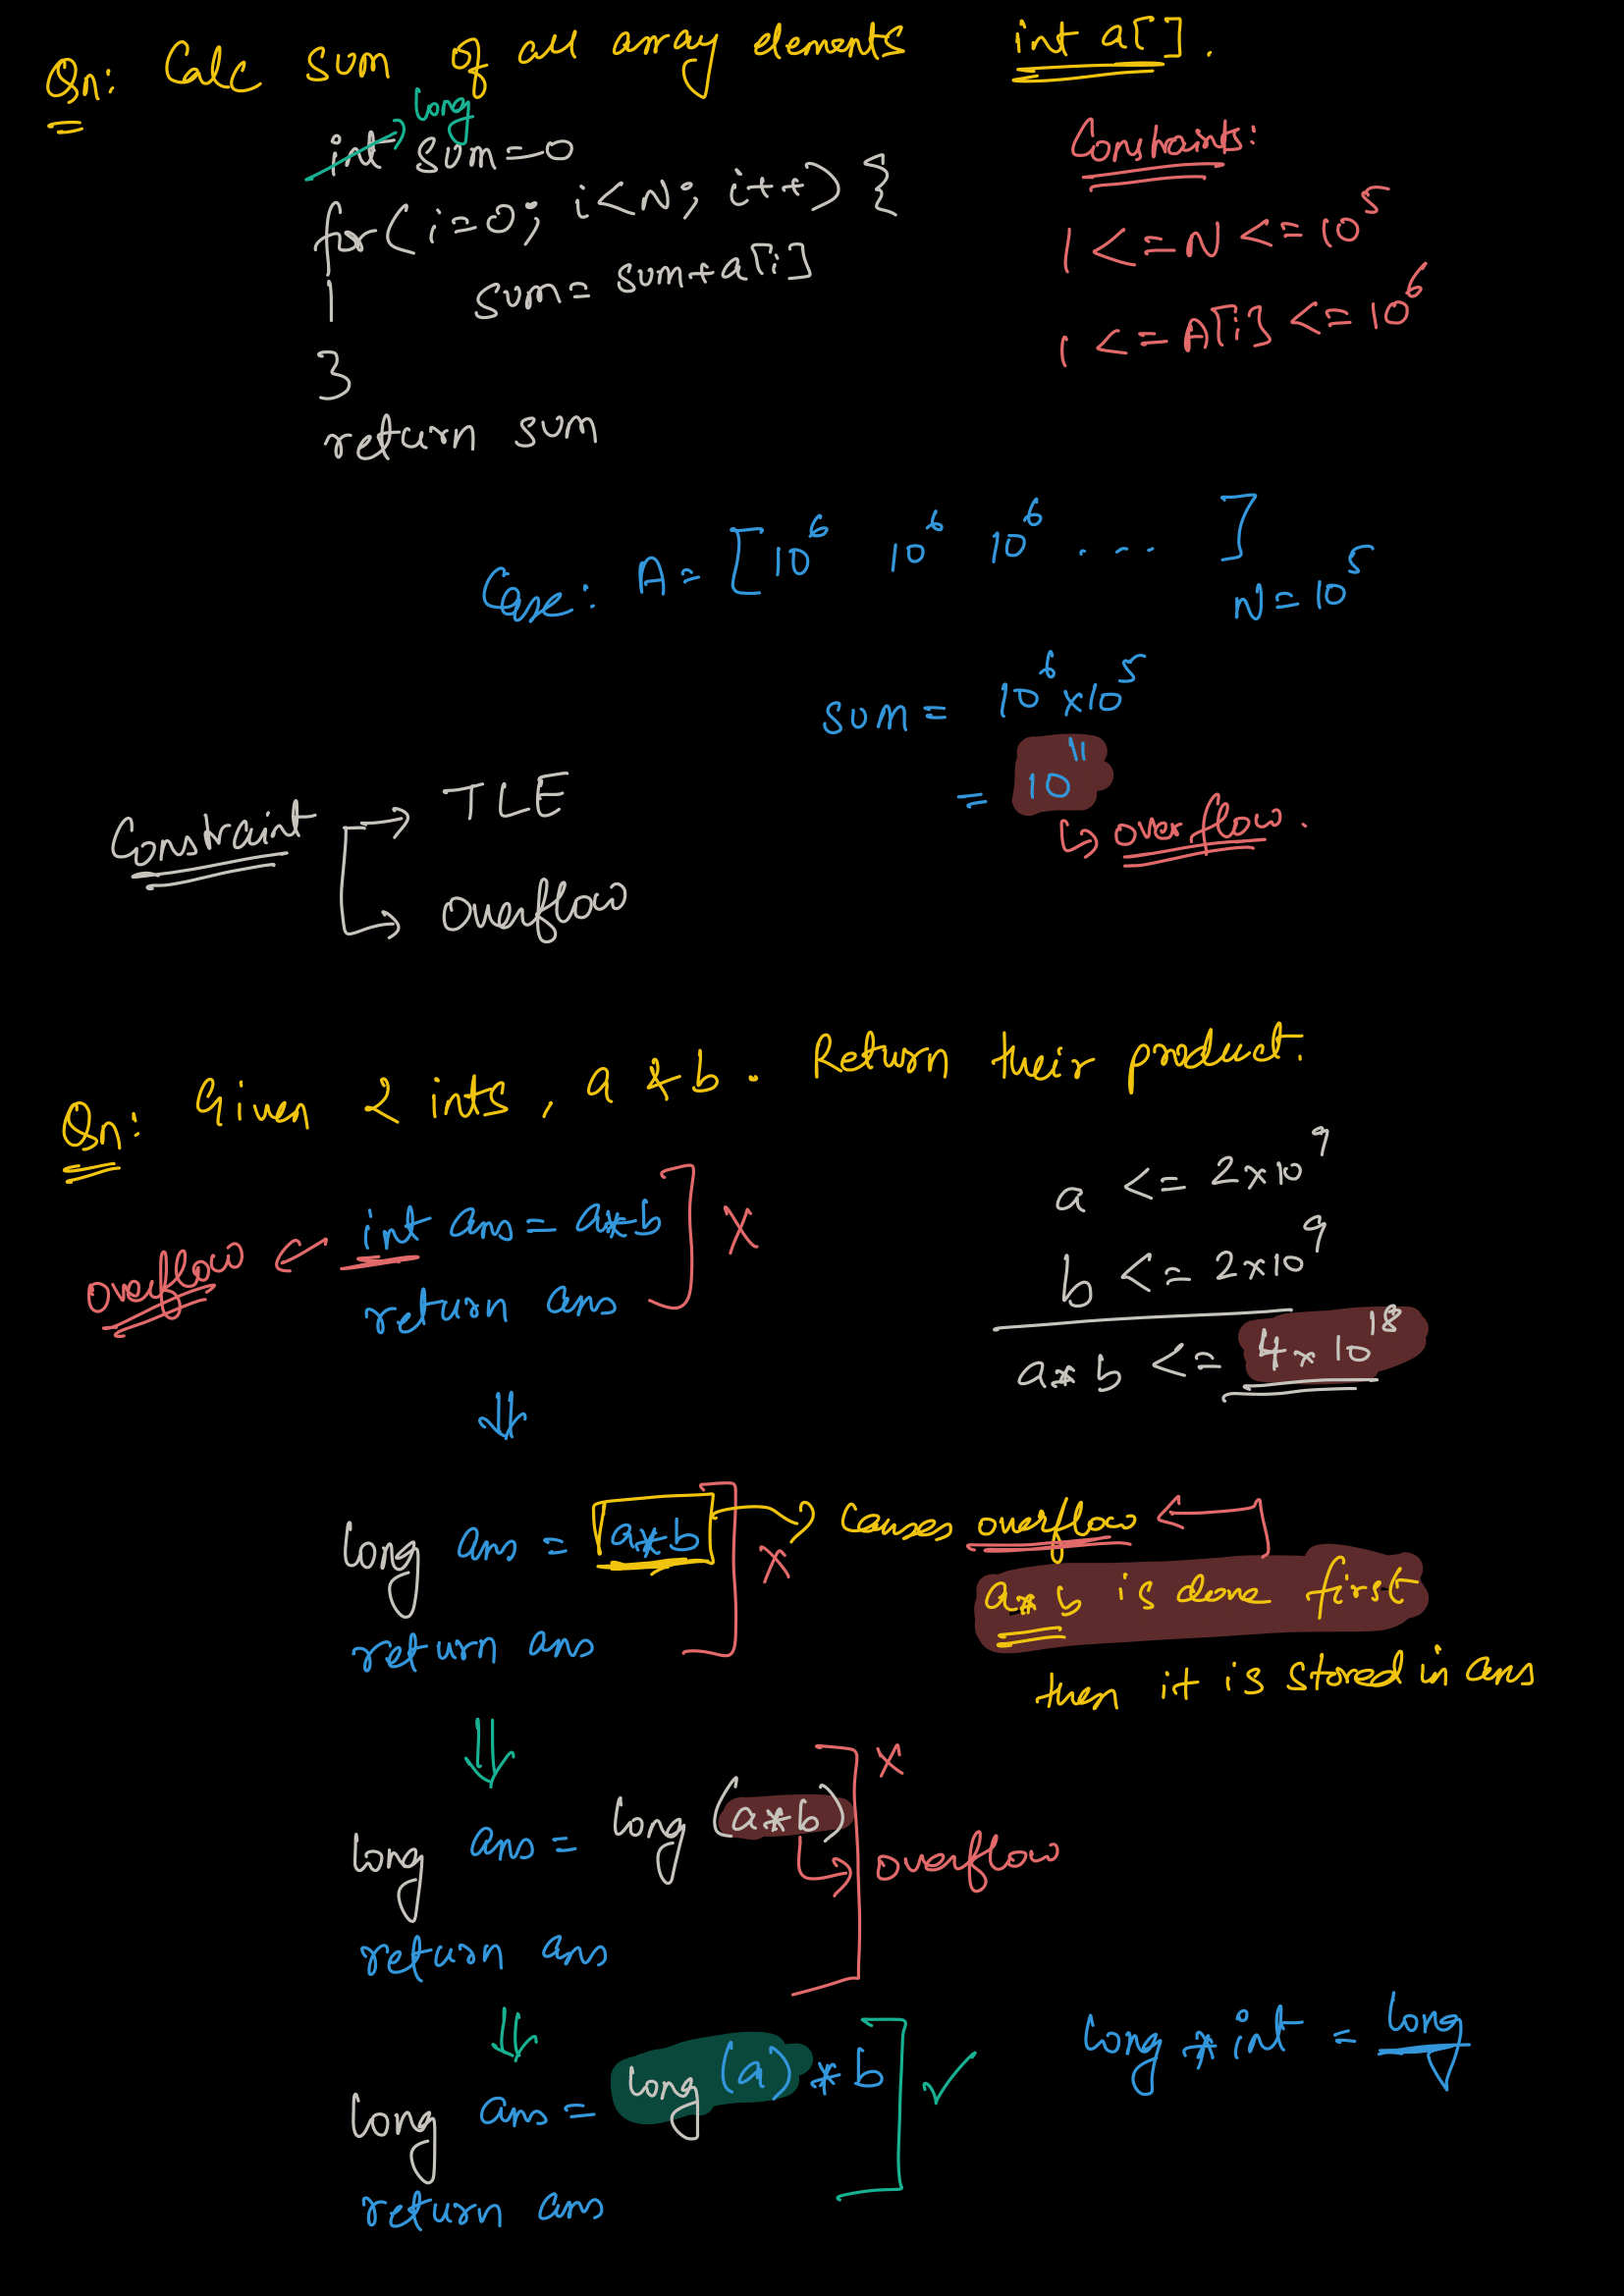 Qn: Calc sum of all array elements int a[].
long
int sum=0
for(i=0; i<N; i++) {
sum= sum+a[i]
}
return sum
Constraints:
1 <=N <=10^5
1 <= A[i] <=10^6
Case: A= [10^6 10^6 10^6 .... ]
N=10^5
sum= 10^6 x10^5
= 10^11
↳ overflow.
Constraint → TLE
→ overflow
Qn: Given 2 ints, a & b. Return their product.
overflow ← int ans= a*b ] X
return ans
a <= 2x10^9
b <= 2x10^9
a*b <= 4x10^18
⇓
long ans = a*b ] X → causes overflow ←
return ans
a*b is done first
then it is stored in ans
⇓
long ans = long (a*b) ] X
↳ overflow
return ans
⇓
long ans = long (a) * b ] ✓
return ans
long * int = long